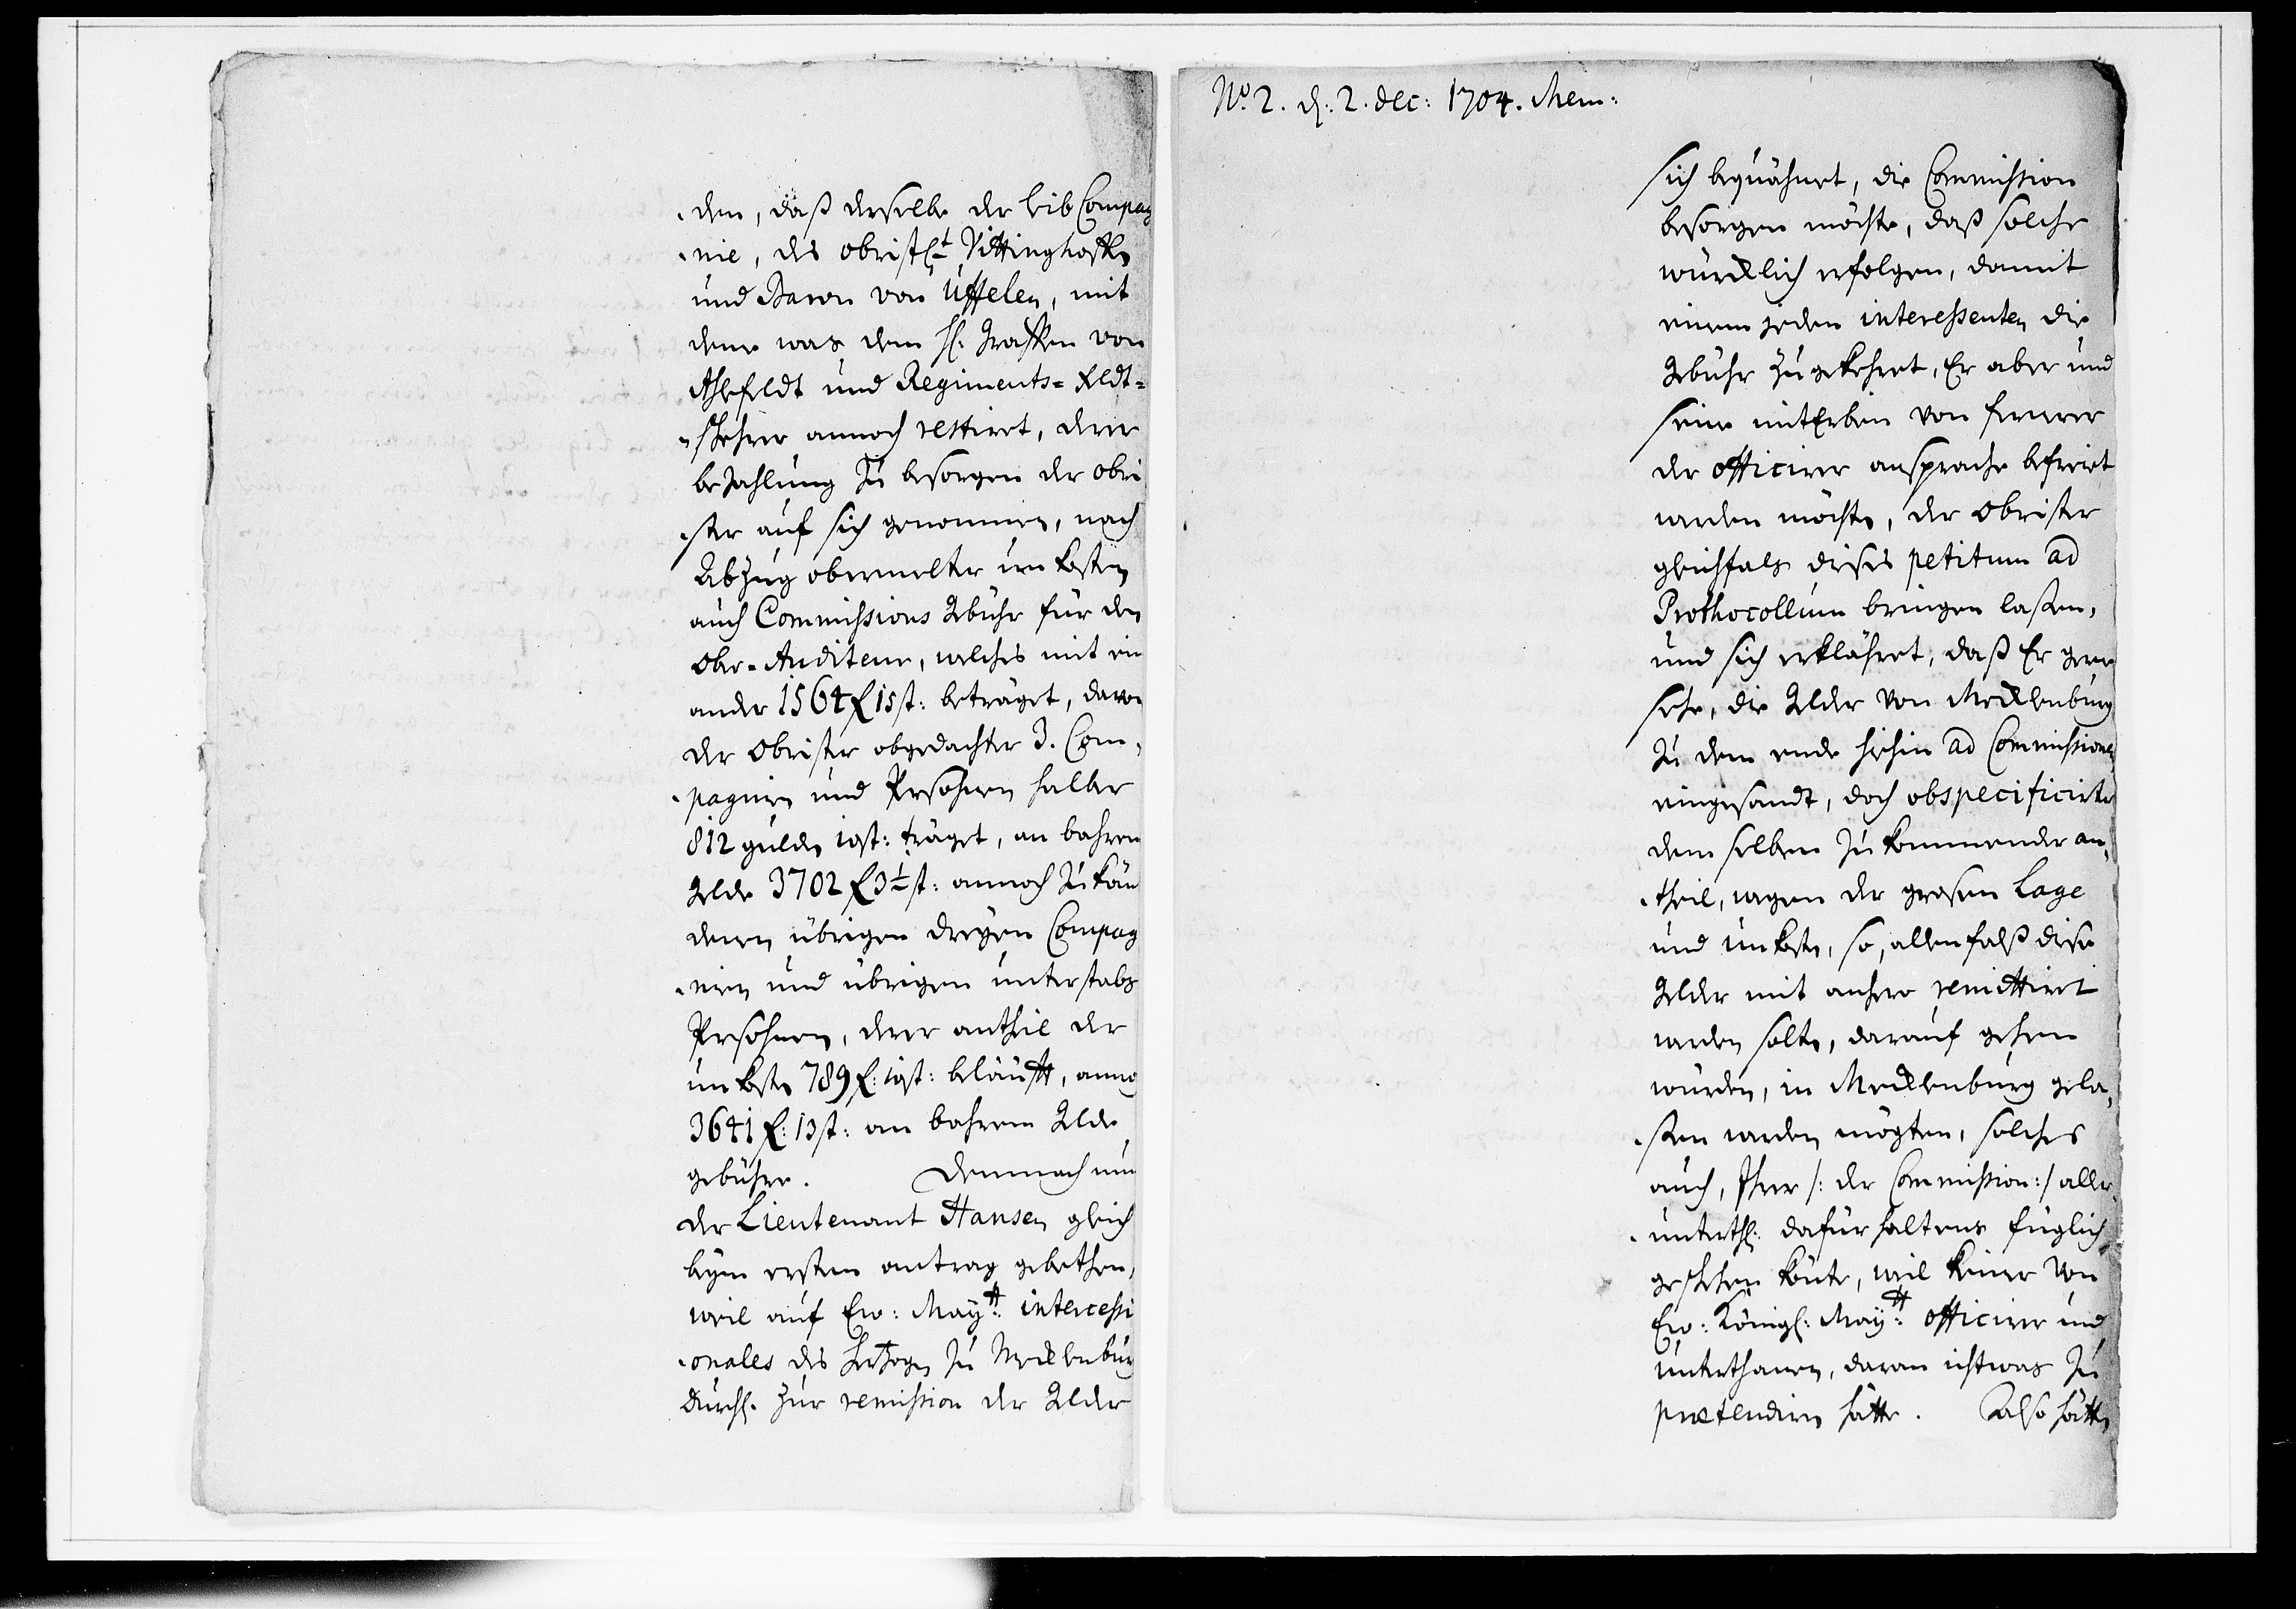 den, daß derselbe der leib Compag
nie, des obristl<sup>t</sup> Vittinghoffs
und Baron von Üffelen, mit
deme was dem H: Graffen von
Ahlefeldt und Regiments-Feldt-
scherer annoch restiret, derer
bezahlung zu besorgen der obri
ster auf sich genommen, nach
Abzug obermelter unkosten
auch Commissions Gebühr für den
Ober-Auditeur, welches mit ein
ander 1564 f 15 st: beträget, davon
der Obrister obgedachter 3. Com-
pagnien und Persohnen halber
812 gulden 19st: träget, an bahren
Gelde 3702 f 3½ st: annoch zukäm
denen übrigen dreyen Compag
nien und übrigen unterstabs
Persohnen, derer antheil der
unkosten 789 f: 19st: beläufft, anno
3641 f: 13 st: an bahrem Gelde
gebühre. Demnach nun
der Lieutenant Hansen gleich
beym ersten antrag gebethen,
weil auf Ew: May<sup>tt</sup>: intercessi
onales des Hertzogs zu Mecklenburg
Durchl. zur remission der Gelder
No. 2. d: 2. dec: 1704. Mem:
sich bequähmet, die Commission
besorgen möchte, daß solche
würcklich erfolgen, damit
einem jeden interessenten die
Gebühr zugekehret, Er aber und
seine mitErben von fernerer
der officirer ansprache befreiet
werden möchte, der Obrister
gleichfals dieses petitum ad
Prothocollum bringen laßen,
und sich erklähret, daß Er gern
sehe, die Gelder von Mecklenburg
zu dem ende hiehin ad Commissionem
eingesandt, doch obspecificirter
demselben zukommender an-
theil, wegen der großen Lage
und unkosten, so, allenfalß diese
Gelder mit anhero remittiret
werden solten, darauf gehen
würden, in Mecklenburg gela-
ßen werden mögten, solches
auch, Ihrer /: der Commission :/ aller-
unterth: dafürhaltens füglich
geschehen könte, weil keiner von
Ew: Königl: May<sup>tt</sup>: officirer und
unterthanen, daran ichtwas zu
prætendiren hätte. Also hätte